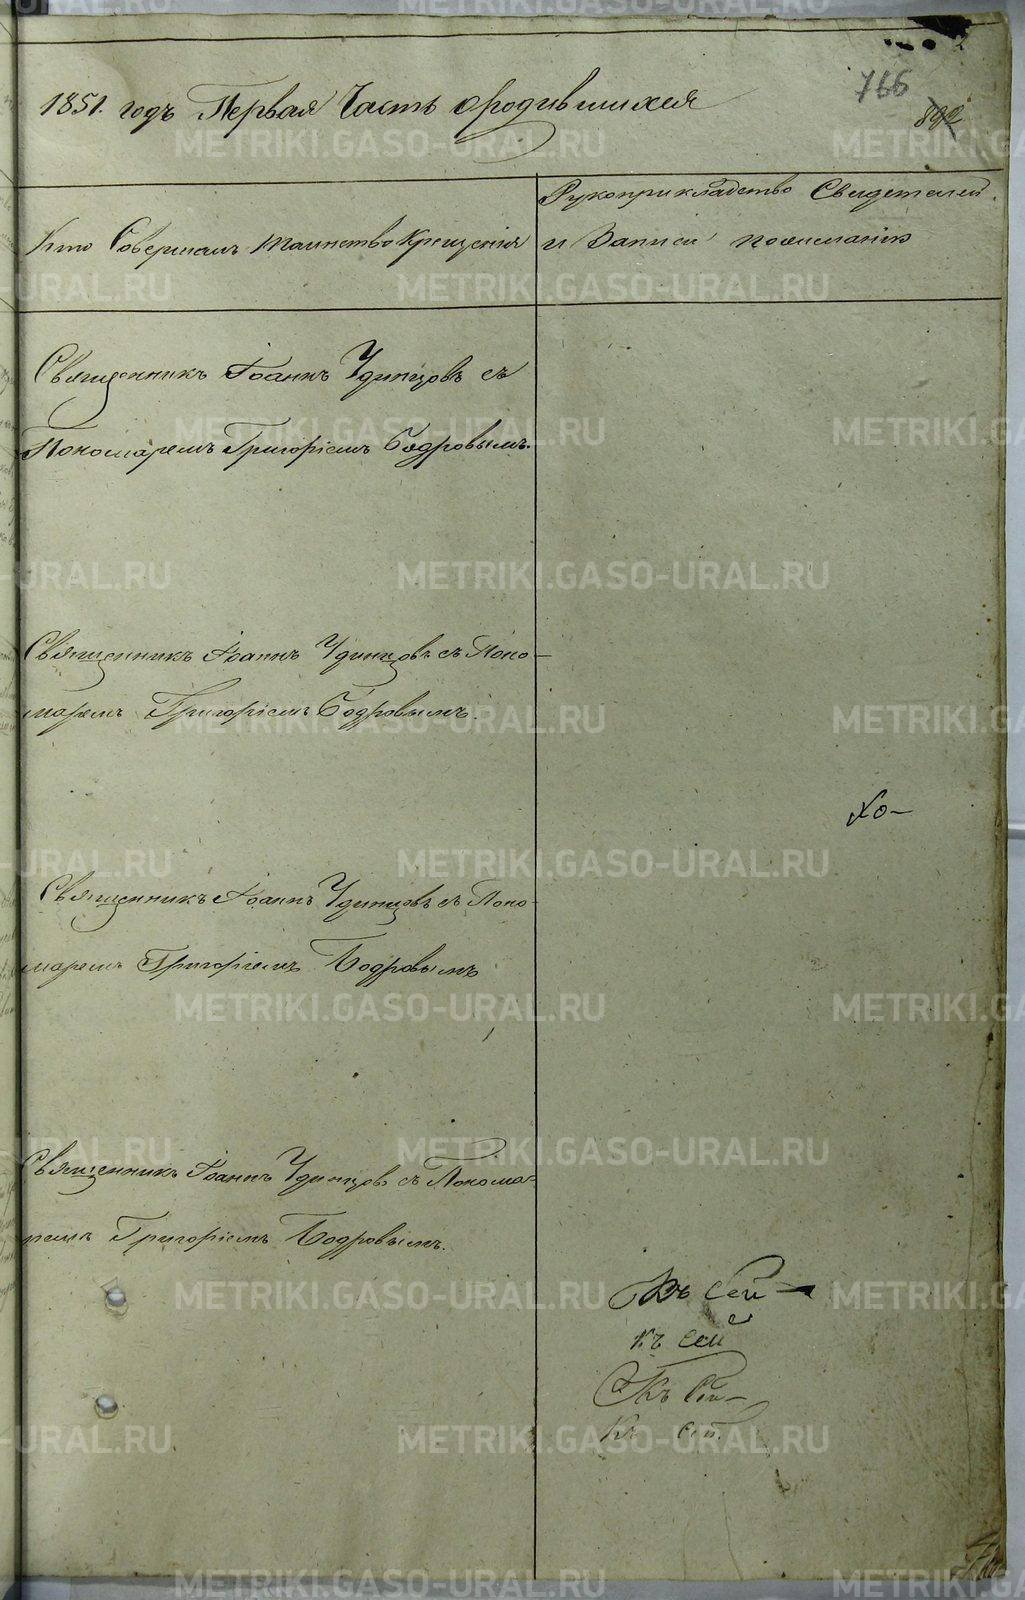 2
766
892
1851. годъ Первая Часть ородившихся
Кто Совершалъ таинство Крещенія
Рукоприкладство Свидетелей
и Записи пожеланію
Священникъ Іоаннъ Удинцовъ съ
Пономаремъ Григоріемъ Бодровымъ.
Священникъ Іоаннъ Удинцовъ съ Поно-
маремъ Григоріемъ Бодровымъ.
Хо-
Священникъ Іоаннъ Удинцовъ съ Поно-
маремъ Григоріемъ Бодровымъ
Священникъ Іоаннъ Удинцовъ съ Понома-
ремъ Григоріемъ Бодровымъ.
Къ Сей
къ сей
Къ Сей
Къ сей.
METRIKI.GASO-URAL.RU